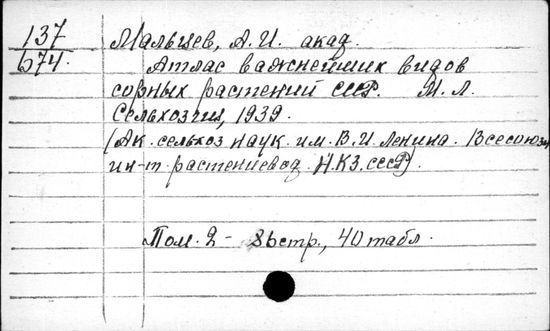 137 Мальцев, А.И. акад.
674. Атлас важнейших видов
сорных растений СССР. М. Л.
Сельхозгиз, 1939.
(Ак. сельхоз наук. им. В.И. Ленина. Всесоюзн.
ин-т растениевод. Н.К.З. СССР)
Том. 2 - 86 стр., 40 табл.